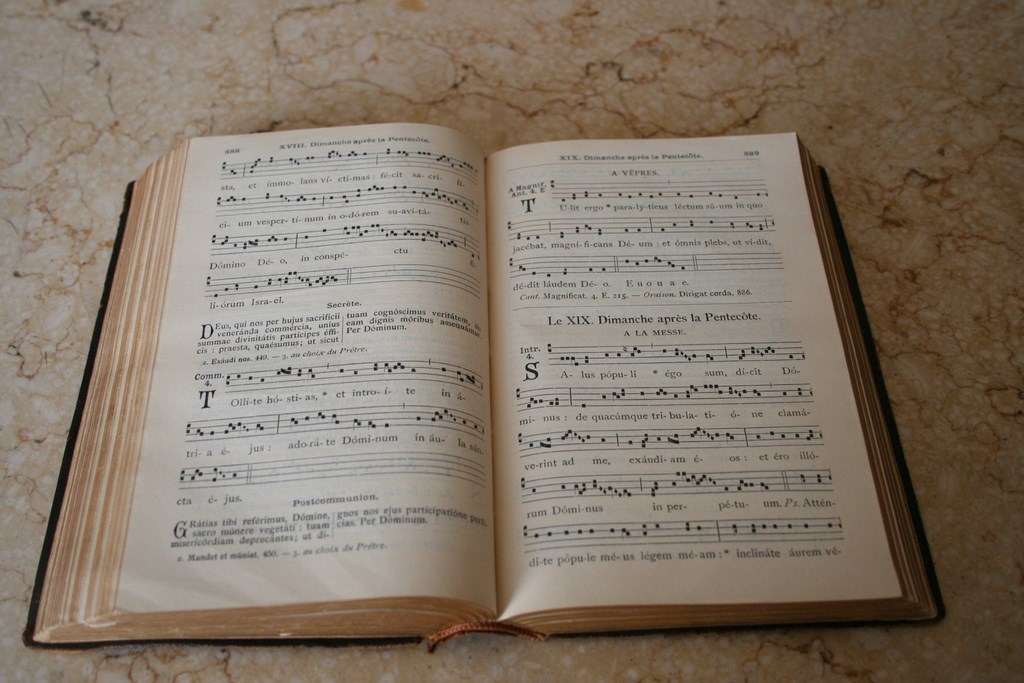 888 XVIII. Dimanche après la Pentecôte.
sta, et immo- lans ví- cti-mas: fé-cit sa- cri- fi-
ci- um vesper- tí-num in o-dó-rem su-avi-tá- tis
Dómino Dé- o, in conspé- ctu
li-órum Isra-el.
Secrète.
DEus, qui nos per hujus sacrifícii
veneránda commércia, uníus
summae divinitátis partícipes éffi-
cis: praesta, quaésumus; ut sicut
tuam cognóscimus veritátem,
eam dignis móribus assequámur.
Per Dóminum.
2. Exáudi nos. 440. — 3. au choix du Prêtre.
Comm.
4.
TOllí-te hó- sti-as, * et intro-í- te in á-
tri- a é- jus: ado-rá-te Dómi-num in áu- la san-
cta é- jus.
Postcommunion.
GRátias tibi reférimus, Dómine,
sacro múnere vegetáti: tuam
misericórdiam deprecántes; ut di-
gnos nos ejus participatióne
cias. Per Dóminum.
2. Mundet et múniat. 450. — 3. au choix du Prêtre.
XIX. Dimanche après la Pentecôte. 889
A VÊPRES.
A Magnif.
Ant. 4. E
TUlit ergo * para-lý-ticus léctum sú-um in quo
jacébat, magní-fi-cans Dé- um: et ómnis plebs, ut ví-dit,
dé-dit láudem Dé- o. E u o u a e.
Cant. Magníficat. 4. E. 215. — Oraison. Dírigat corda. 886.
Le XIX. Dimanche après la Pentecôte.
A LA MESSE.
Intr.
4.
SA- lus pópu-li * égo sum, dí-cit Dó-
mi- nus: de quacúmque tri-bu-la- ti- ó- ne clamá-
ve-rint ad me, exáudi-am é- os: et éro illó-
rum Dómi-nus in per- pé-tu- um. Ps. Attén-
di-te pópu-le mé-us légem mé-am: * inclináte áurem vé-